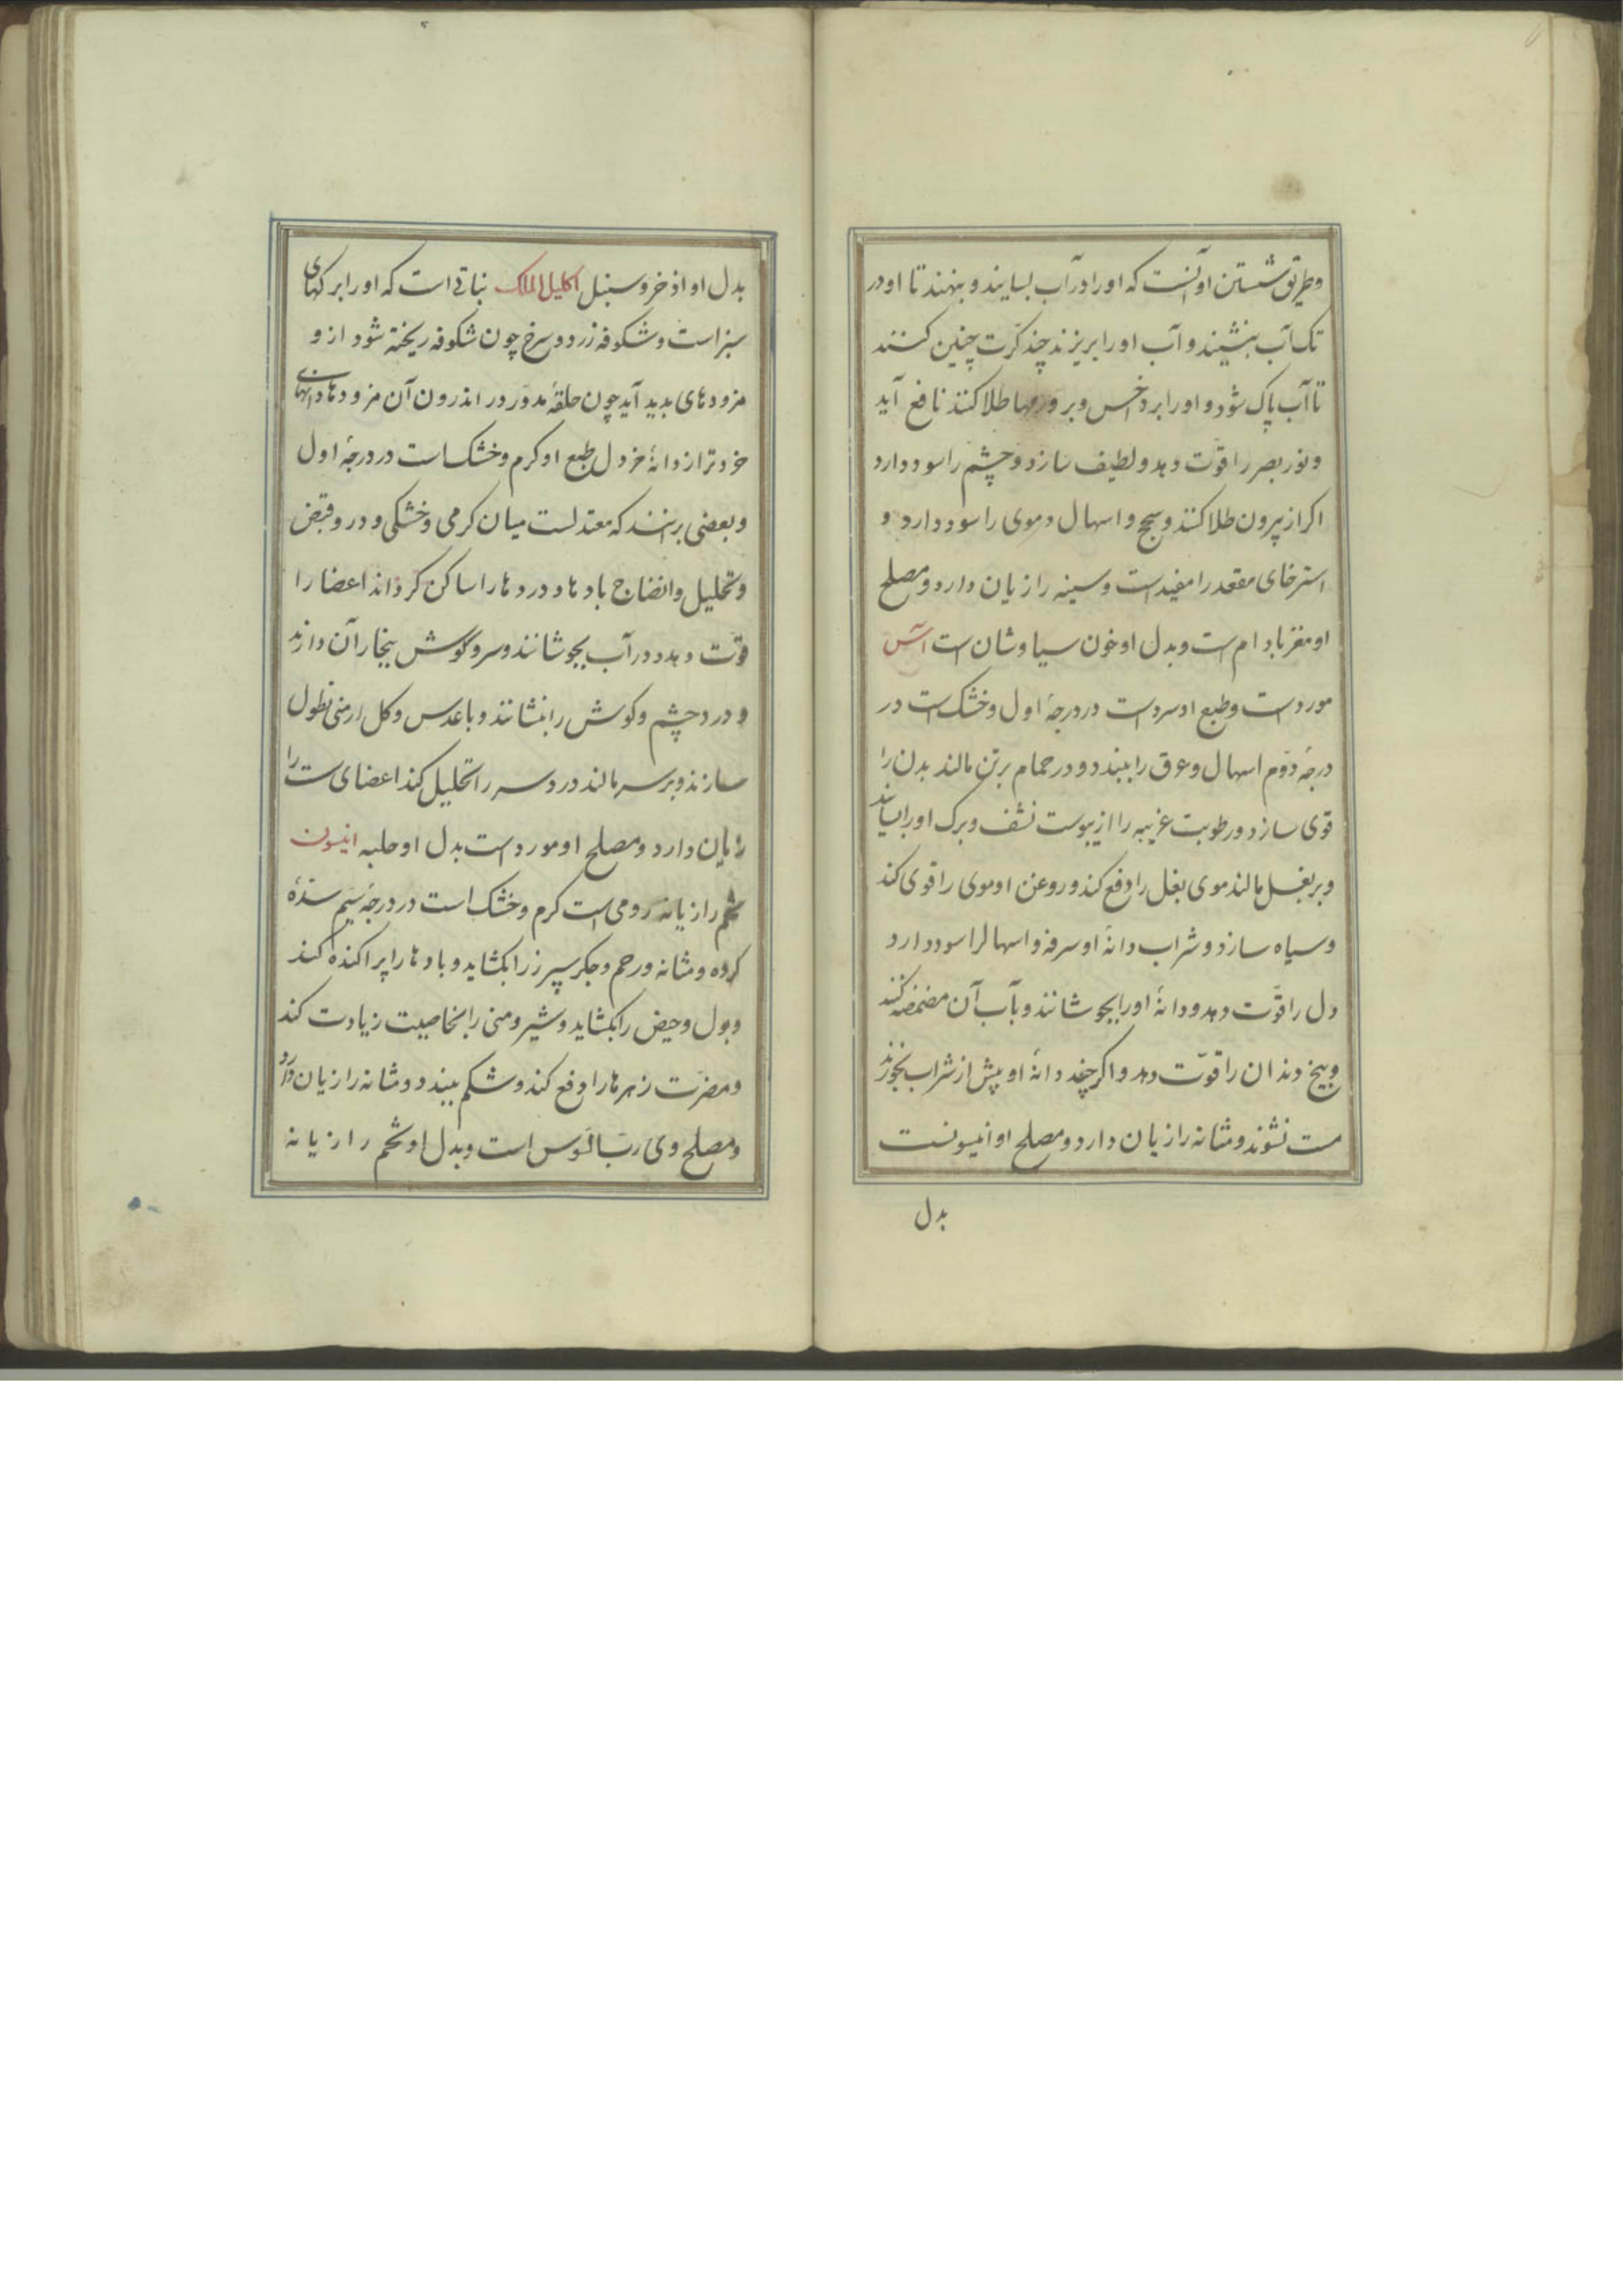 و طریق شستن او آنست که او را در آب بسایند و بنهند تا او در
تک آب بنشیند و آب او را بریزند چند کرّت چنین کنند
تا آب پاک شود و او را بر داخس و بر ورمها طلا کنند نافع آید
و نور بصر را قوّت دهد و لطیف سازد و چشم را سود دارد
اکر از بیرون طلا کنند و سحج و اسهال دموی را سود دارد و
استرخای مقعد را مفیدست و سینه را زیان دارد و مصلح
او مغز بادام است و بدل او خون سیاوشان است آس
مورد است و طبع او سرد است در درجهٔ اول و خشک است در
درجهٔ دوّم اسهال و عرق را ببندد و در حمام بر تن مالند بدن را
قوی سازد و رطوبت غریبه را از پوست نشف و برک او را بسایند
و بر بغل مالند موی بغل را دفع کند و روغن او موی را قوی کند
و سیاه سازد و شراب دانهٔ او سرفه و اسهال را سود دارد
دل را قوّت دهد و دانهٔ او را بجوشانند و بآب آن مضمضه کنند
و بیخ دندان را قوّت دهد و اکر چند دانهٔ او پیش از شراب بخورند
مست نشوند و مثانه را زیان دارد و مصلح او انیسونست
بدل
بدل او اذخر و سنبل اکلیل الملک نباتی است که او را برکهای
سبز است و شکوفه زرد و سرخ چون شکوفه ریخته شود ازو
مزودهای بدید آید چون حلقهٔ مدوّر در اندرون آن مزودها دانهای
خردتر از دانهٔ خردل طبع او کرم و خشک است در درجهٔ اول
و بعضی برانند که معتدلست میان کرمی و خشکی و درو قبض
و تحلیل و انضاج بادها و دردها را ساکن کرداند اعضا را
قوّت دهد و در آب بجوشانند و سر و کوش ببخار آن دارند
و درد چشم و کوش را بنشانند و با عدس و کل ارمنی نطول
سازند و بر سر مالند درد سر را تحلیل کند اعضای ست را
زیان دارد و مصلح او مورد است بدل او حلبه انیسون
تخم رازیانه رومی است کرم و خشک است در درجهٔ سیّم سدّهٔ
کرده و مثانه و رحم و جکر سپرز را بکشاید و بادها را پراکنده کند
و بول و حیض را بکشاید و شیر و منی را بخاصیت زیادت کند
و مضرّت زهرها را دفع کند و شکم ببندد و مثانه را زیان دارد
و مصلح وی ربّ السّوس است و بدل او تخم رازیانه